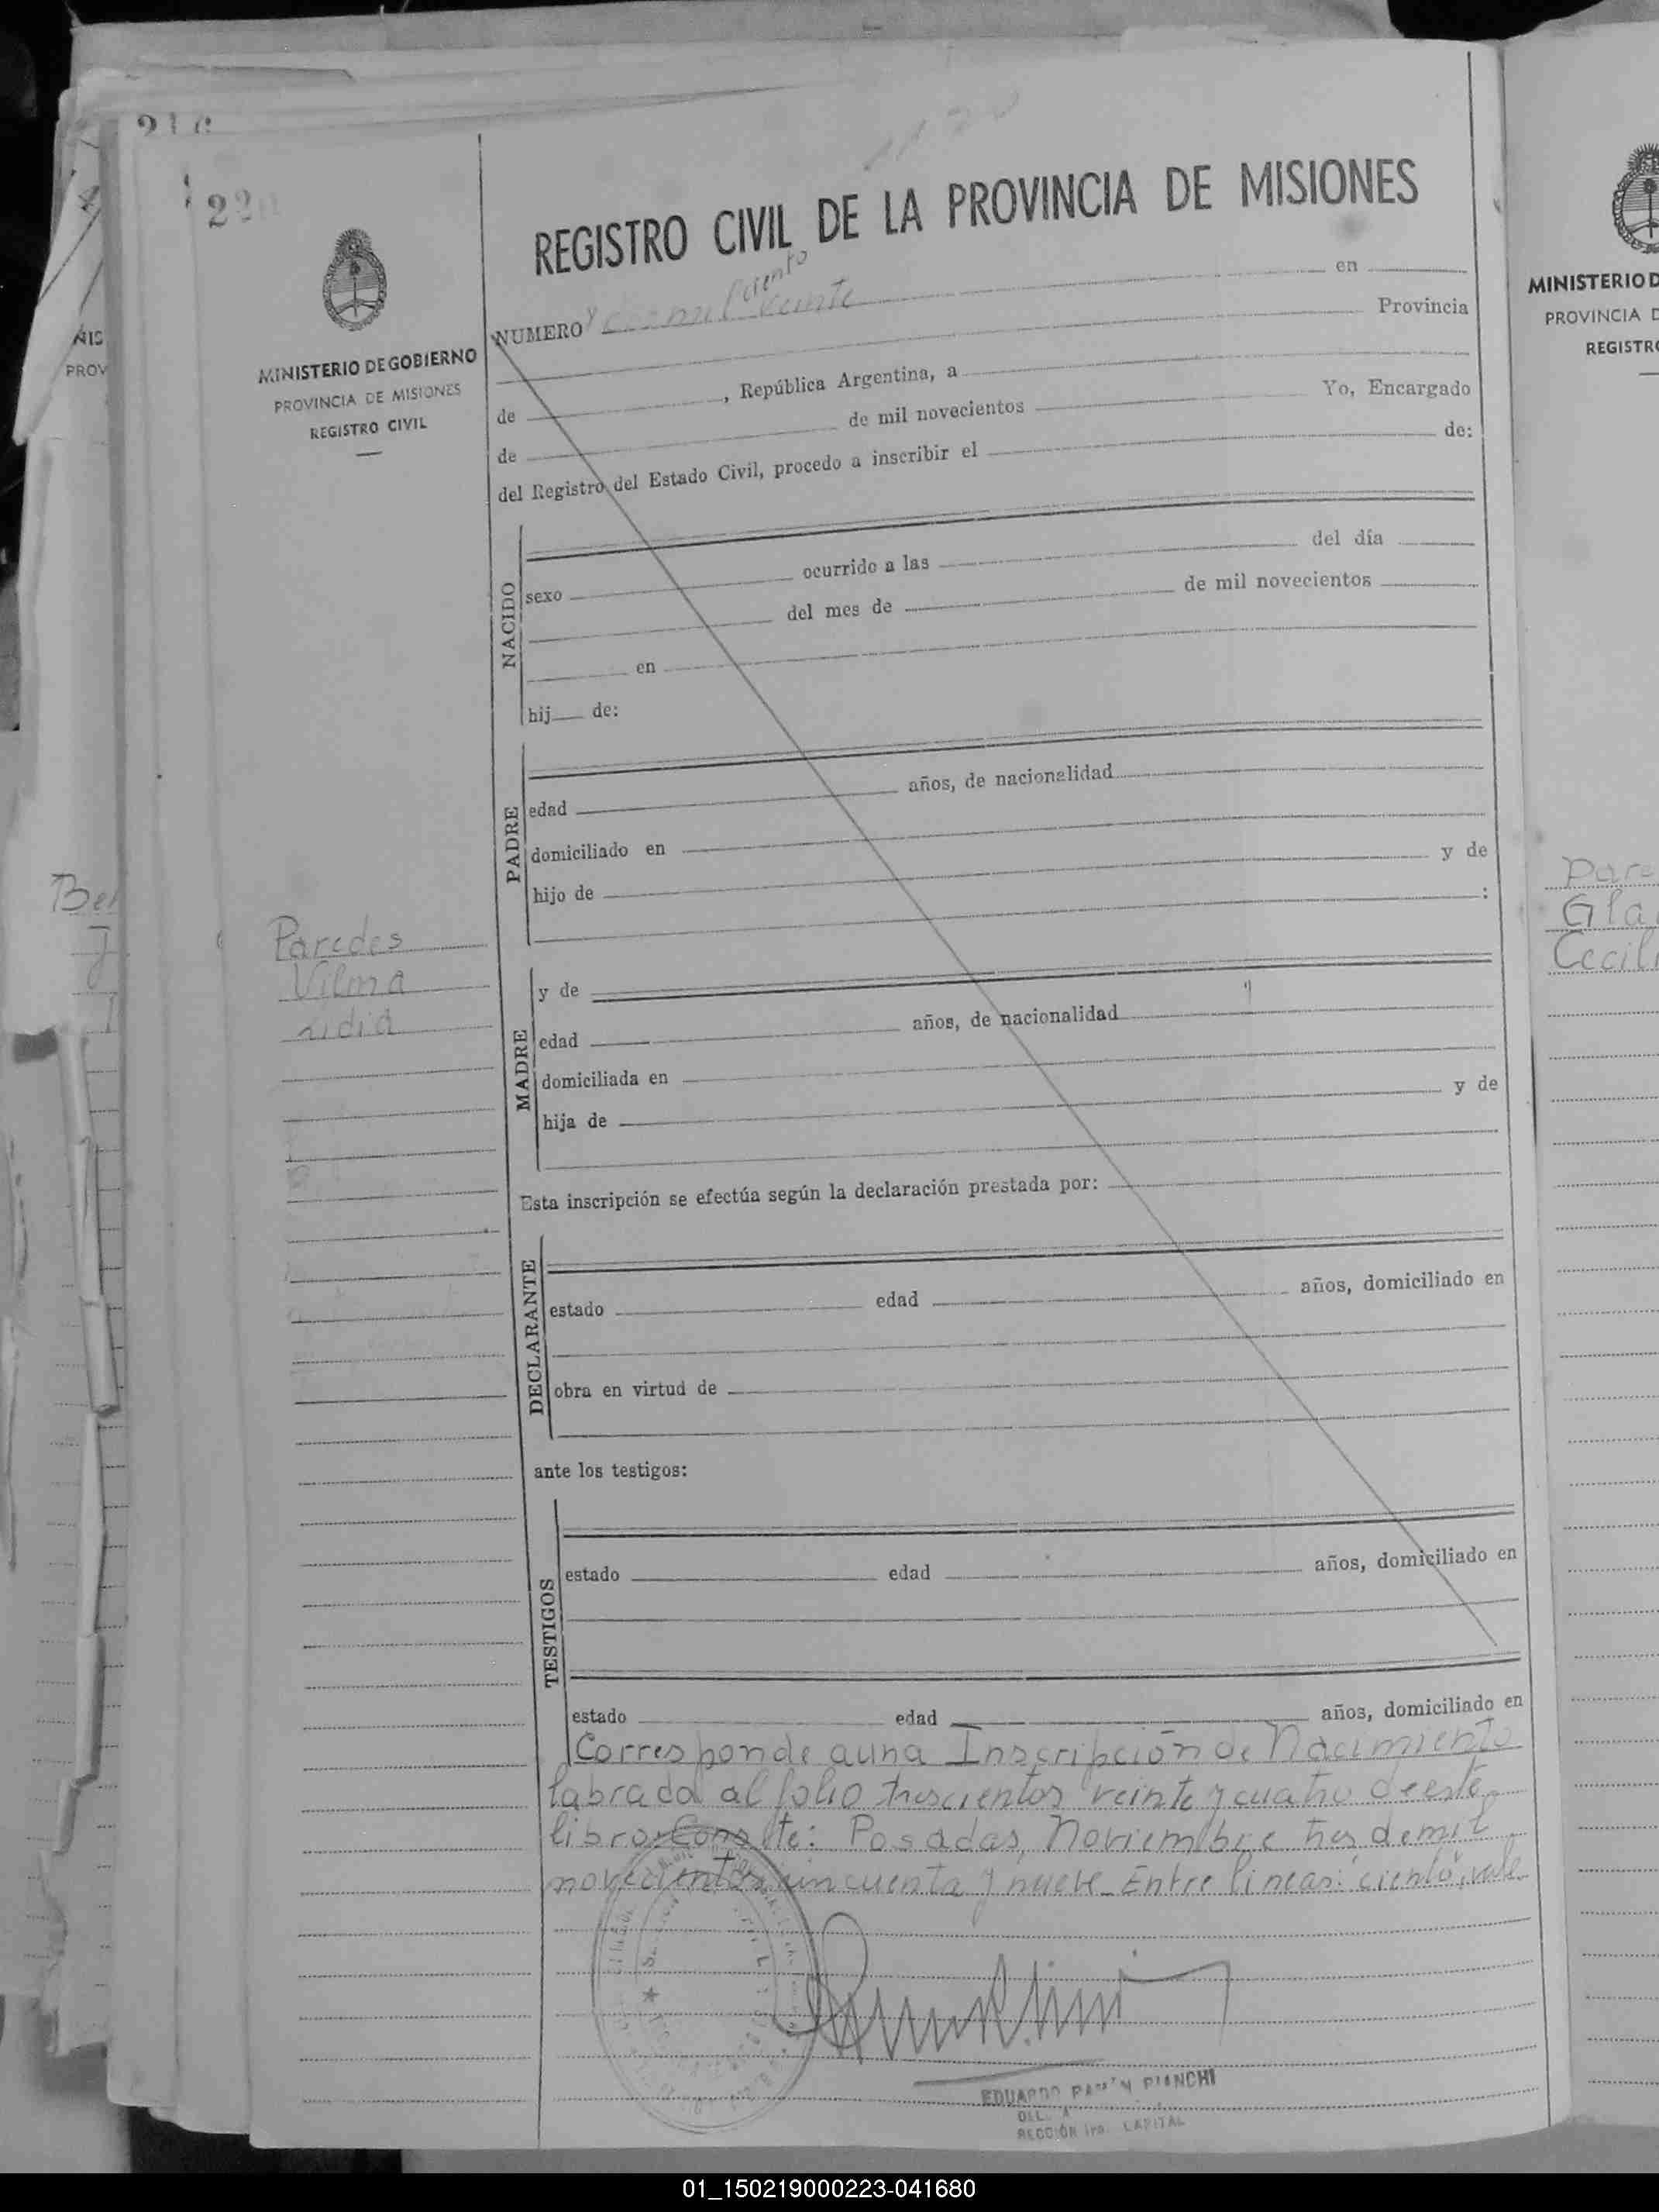 220
REGISTRO CIVIL DE LA PROVINCIA DE MISIONES
MINISTERIO DE GOBIERNO
PROVINCIA DE MISIONES
REGISTRO CIVIL
ciento
NUMERO mil veinte en
Provincia
de , República Argentina, a
de de mil novecientos Yo, Encargado
del Registro del Estado Civil, procedo a inscribir el de:
NACIDO
sexo ocurrido a las del día
del mes de de mil novecientos
en
hij de:
PADRE
edad años, de nacionalidad
domiciliado en
hijo de y de
:
Paredes
Vilma
Lidia
MADRE
y de
edad años, de nacionalidad
domiciliada en
hija de y de
Esta inscripción se efectúa según la declaración prestada por:
DECLARANTE
estado edad años, domiciliado en
obra en virtud de
ante los testigos:
TESTIGOS
estado edad años, domiciliado en
estado edad años, domiciliado en
Corresponde a una Inscripción de Nacimiento
labrada al folio trescientos veinte y cuatro de este
libro. Conste: Posadas, Noviembre tres de mil
novecientos cincuenta y nueve. Entre lineas: "ciento", vale
EDUARDO RAMON BIANCHI
SECCIÓN 1ra. CAPITAL
MINISTERIO D
PROVINCIA D
REGISTR
Pare
Gla
Cecil
NIS
PROV
Ber
01_150219000223-041680